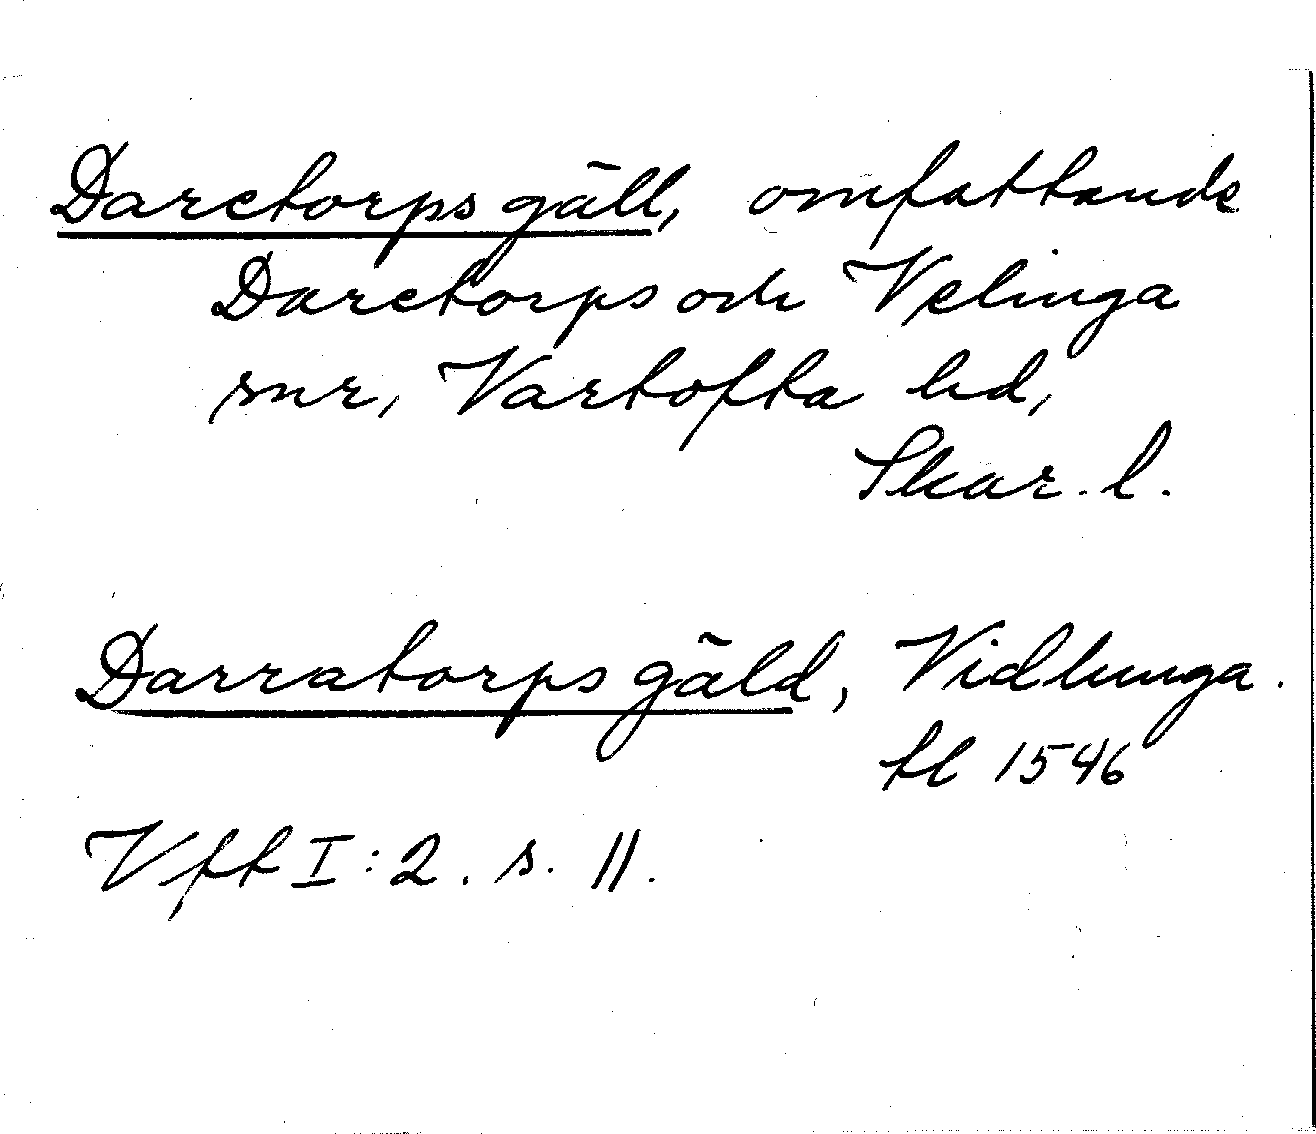 Daretorps gäll, omfattande
Daretorps och Velinga
snr, Vartofta hd,
Skar. l.
Darratorps gäld, Vidhunga.
tl 1546
Vft I:2. s. 11.